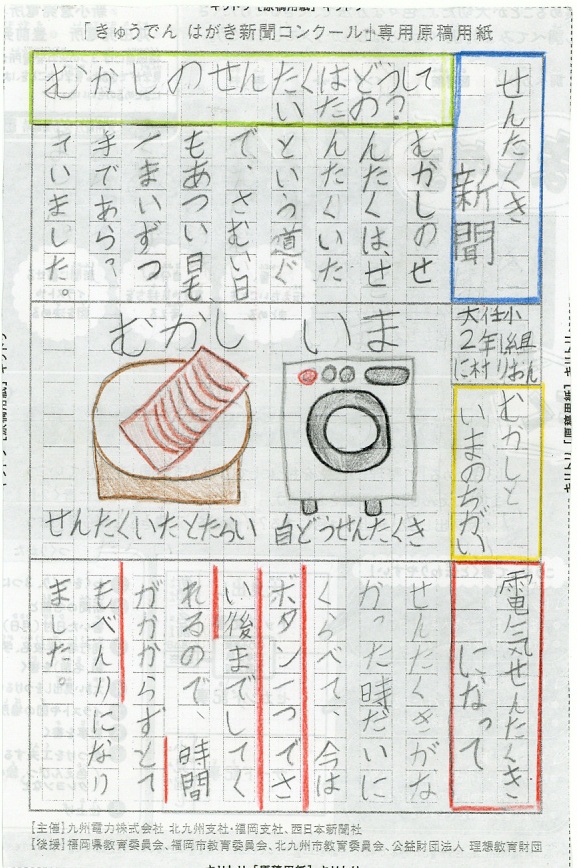 「きゅうでん はがき新聞コンクール」専用原稿用紙
せんたくき
新聞
大任小
2年1組
に村りおん
むかしのせんたくはどうして
いたの?
むかしのせ
んたくは、せ
んたくいた
という道ぐ
で、さむい日
もあつい日も、
一まいずつ
手であらっ
ていました。
むかしと
いまのちがい
いま
むかし
自どうせんたくき
せんたくいたとたらい
電気せんたくき
になって
せんたくきがな
かった時だいに
くらべて、今は
ボタン一つでさ
い後までしてく
れるので、時間
がかからずとて
もべんりになり
ました。
[主催]九州電力株式会社 北九州支社・福岡支社、西日本新聞社
[後援]福岡県教育委員会、福岡市教育委員会、北九州市教育委員会、公益財団法人 理想教育財団